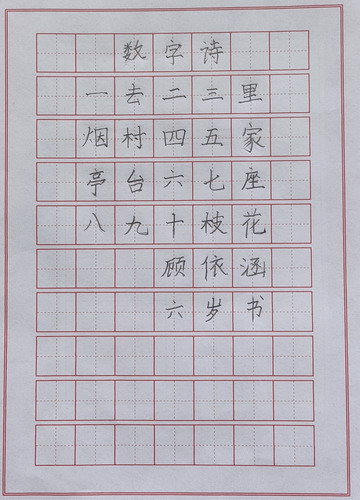 数字诗
一去二三里
烟村四五家
亭台六七座
八九十枝花
顾依涵
六岁书